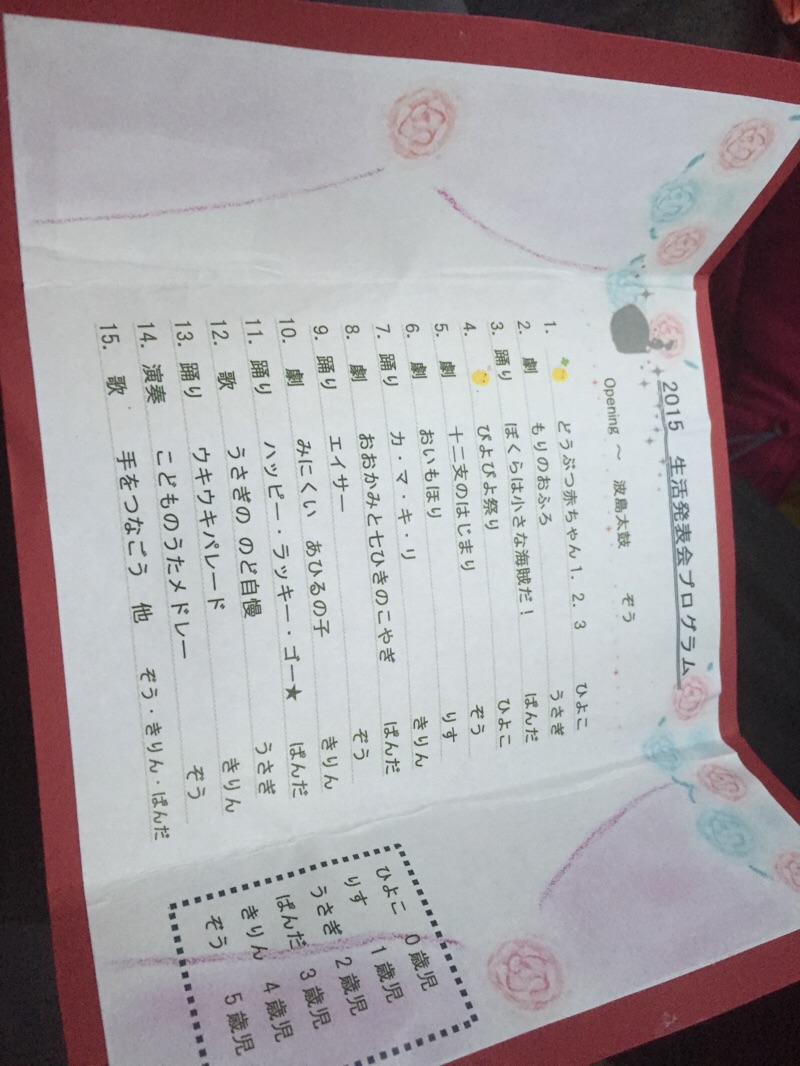 2015 生活発表会プログラム
Opening ～ 波島太鼓 ぞう
1. どうぶつ赤ちゃん1. 2. 3 ひよこ
2. 劇 もりのおふろ うさぎ
3. 踊り ぼくらは小さな海賊だ！ ぱんだ
4. ぴよぴよ祭り ひよこ
5. 劇 十二支のはじまり ぞう
6. 劇 おいもほり りす
7. 踊り カ・マ・キ・リ きりん
8. 劇 おおかみと七ひきのこやぎ ぱんだ
9. 踊り エイサー ぞう
10. 劇 みにくい あひるの子 きりん
11. 踊り ハッピー・ラッキー・ゴー★ ぱんだ
12. 歌 うさぎの のど自慢 うさぎ
13. 踊り ウキウキパレード きりん
14. 演奏 こどものうたメドレー ぞう
15. 歌 手をつなごう 他 ぞう・きりん・ぱんだ
ひよこ 0歳児
りす 1歳児
うさぎ 2歳児
ぱんだ 3歳児
きりん 4歳児
ぞう 5歳児